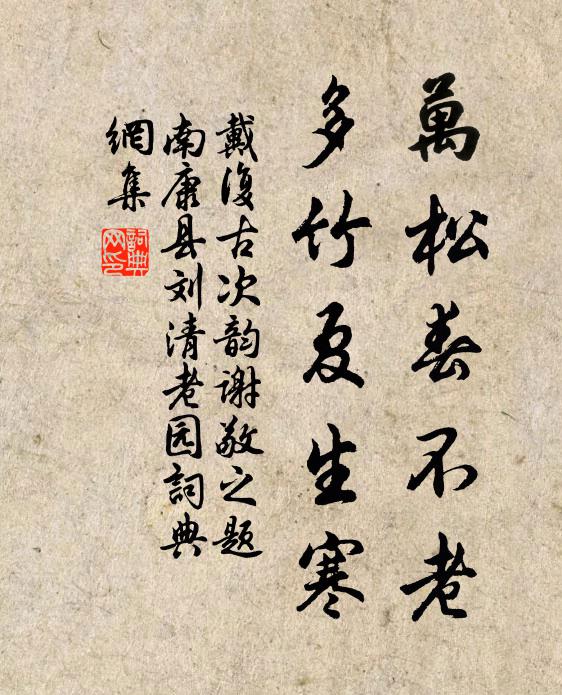 萬松春不老
多竹夏生寒
戴復古次韵谢敬之题
南康县刘清老园詞典
網集
詞典
网印